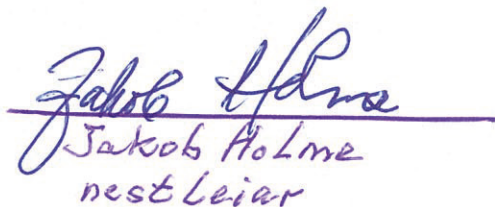 Jakob Holme
Jakob Holme
nestleiar